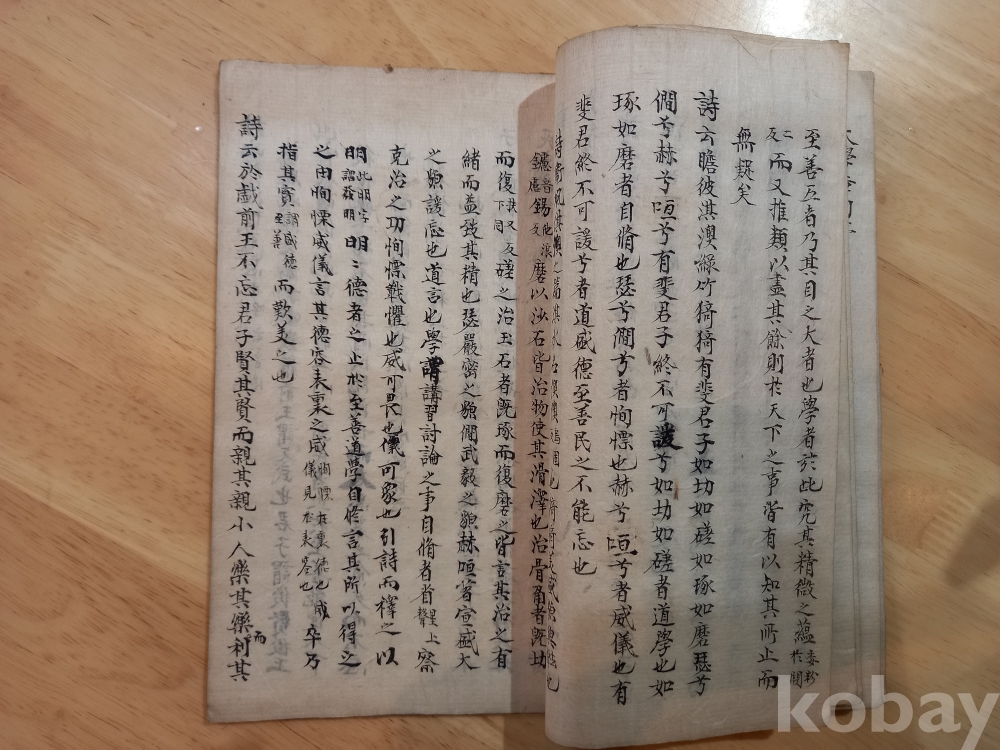 至善五者乃其目之大者也學者於此究其精微之蘊委粉於問
二反而又推類以盡其餘則於天下之事皆有以知其所止而
無疑矣
詩云瞻彼淇澳綠竹猗猗有斐君子如切如磋如琢如磨瑟兮
僩兮赫兮咺兮有斐君子終不可諼兮如切如磋者道學也如
琢如磨者自脩也瑟兮僩兮者恂慄也赫兮咺兮者威儀也有
斐君終不可諼兮者道盛德至善民之不能忘也
鑢音慮錫他浪反磨以沙石皆治物使其滑澤也治骨角者旣切
而復扶又反下同磋之治玉石者旣琢而復磨之皆言其治之有
緖而益致其精也瑟嚴密之貌僩武毅之貌赫咺宣盛大
之貌諼忘也道言也學謂講習討論之事自脩者省察
克治之功恂慄戰懼也威可畏也儀可象也引詩而釋之以
明此明字訓發明明德者之止於至善道學自修言其所以得之
之由恂慄威儀言其德容表裏之盛恂慄在裏德也威儀見於表容也卒乃
指其實謂盛德至善而歎美之也
詩云於戲前王不忘君子賢其賢而親其親小人樂其樂而利其
kobay